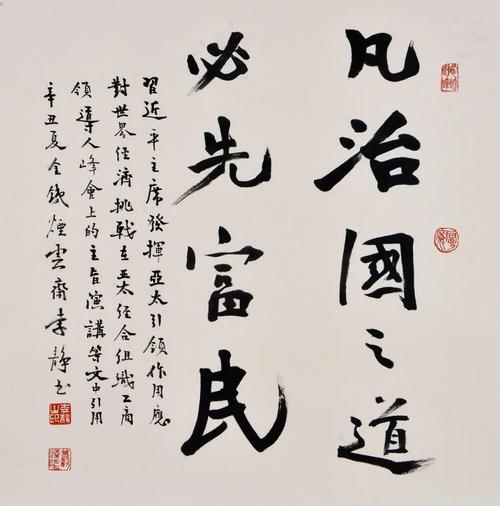 凡治國之道
必先富民
習近平主席發揮亞太引領作用應
對世界經濟挑戰在亞太經合組織工商
領導人峰會上的主旨演講等文中引用
辛丑夏全錢煙雲齋李靜书